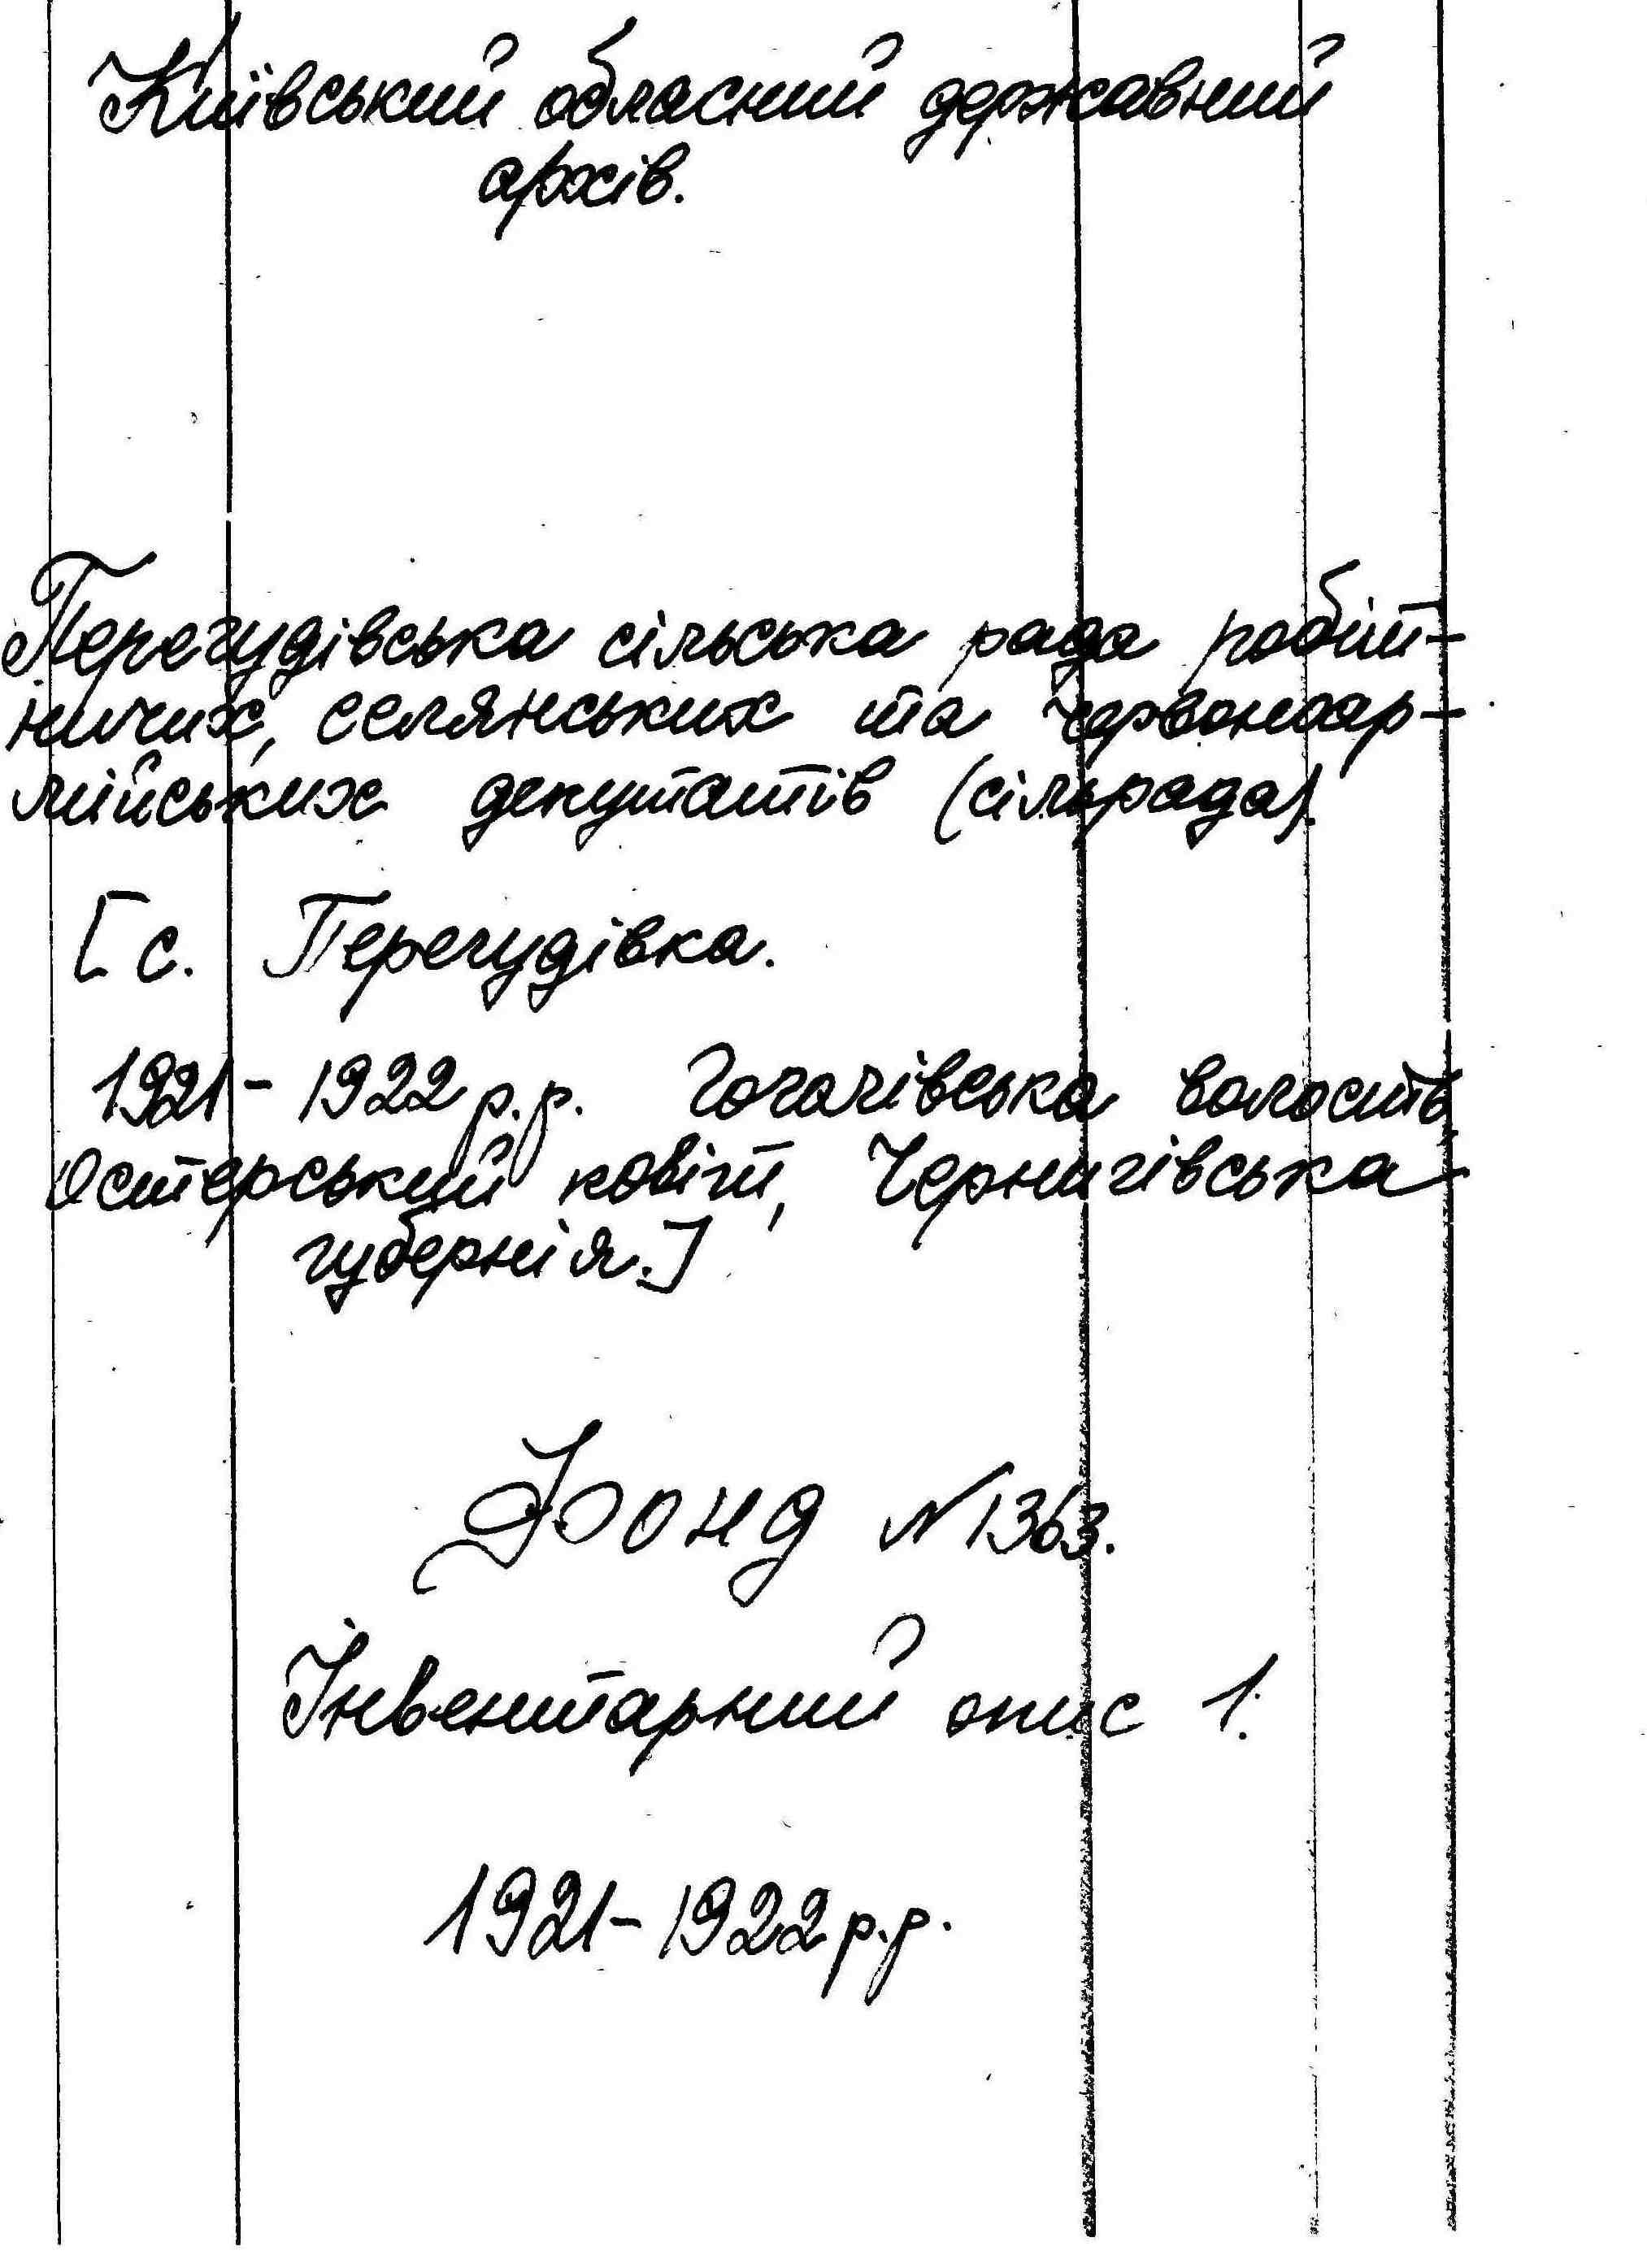 Київський обласний державний
архів.
Перегудівська сільська рада робіт-
ничих, селянських та червоноар-
мійських депутатів (сільрада).
[с. Перегудівка.
1921-1922 р.р. Гоголівська волость,
Остерський повіт, Чернигівська
губернія.]
Фонд №1363.
Інвентарний опис 1.
1921-1922 р.р.